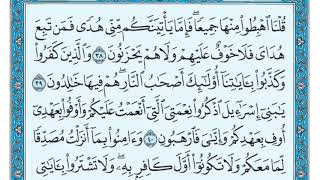 قُلْنَا ٱهْبِطُوا۟ مِنْهَا جَمِيعًا ۖ فَإِمَّا يَأْتِيَنَّكُم مِّنِّى هُدًى فَمَن تَبِعَ
هُدَاىَ فَلَا خَوْفٌ عَلَيْهِمْ وَلَا هُمْ يَحْزَنُونَ ٣٨ وَٱلَّذِينَ كَفَرُوا۟
وَكَذَّبُوا۟ بِـَٔايَـٰتِنَآ أُو۟لَـٰٓئِكَ أَصْحَـٰبُ ٱلنَّارِ ۖ هُمْ فِيهَا خَـٰلِدُونَ
٣٩ يَـٰبَنِىٓ إِسْرَٰٓءِيلَ ٱذْكُرُوا۟ نِعْمَتِىَ ٱلَّتِىٓ أَنْعَمْتُ عَلَيْكُمْ وَأَوْفُوا۟ بِعَهْدِىٓ
أُوفِ بِعَهْدِكُمْ وَإِيَّـٰىَ فَٱرْهَبُونِ ٤٠ وَءَامِنُوا۟ بِمَآ أَنزَلْتُ مُصَدِّقًا
لِّمَا مَعَكُمْ وَلَا تَكُونُوٓا۟ أَوَّلَ كَافِرٍۭ بِهِۦ ۖ وَلَا تَشْتَرُوا۟ بِـَٔايَـٰتِى